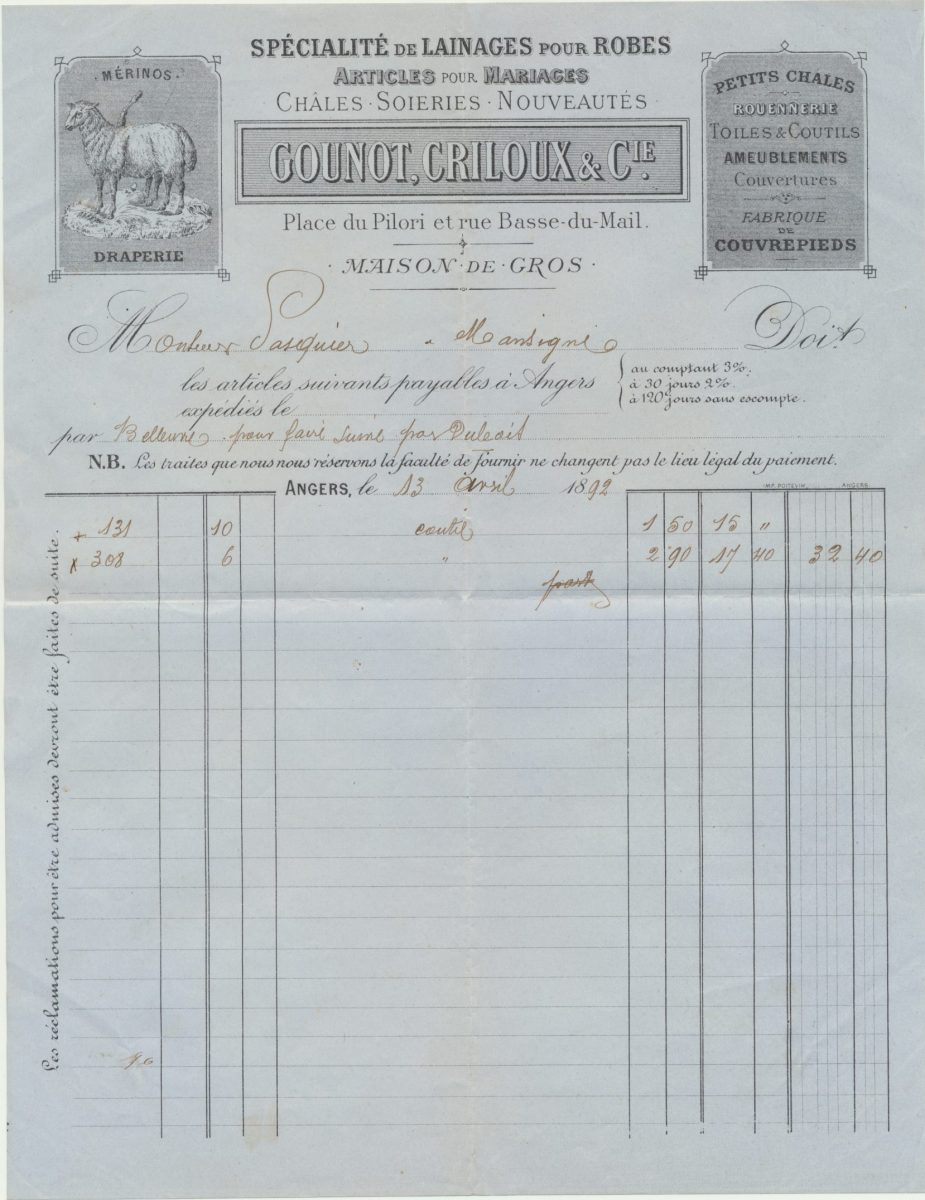 SPÉCIALITÉ DE LAINAGES POUR ROBES
ARTICLES POUR MARIAGES
CHÂLES · SOIERIES · NOUVEAUTÉS
GOUNOT, CRILOUX & CIE.
Place du Pilori et rue Basse-du-Mail.
· MAISON · DE · GROS ·
· MÉRINOS ·
DRAPERIE
PETITS CHALES
ROUENNERIE
TOILES & COUTILS
AMEUBLEMENTS
Couvertures
FABRIQUE
DE
COUVREPIEDS
Monsieur Pasquier a Mansigné Doit
les articles suivants payables à Angers
expédiés le
au comptant 3%.
à 30 jours 2%.
à 120 jours sans escompte.
par pour faire suivre par
N.B. Les traites que nous nous réservons la faculté de fournir ne changent pas le lieu légal du paiement.
ANGERS, le 13 Avril 1892
IMP. POITEVIN, ANGERS
+ 131 10 coutil 1 50 15 "
x 308 6 " 2 90 17 40 32 40
Les réclamations pour être admises devront être faites de suite.